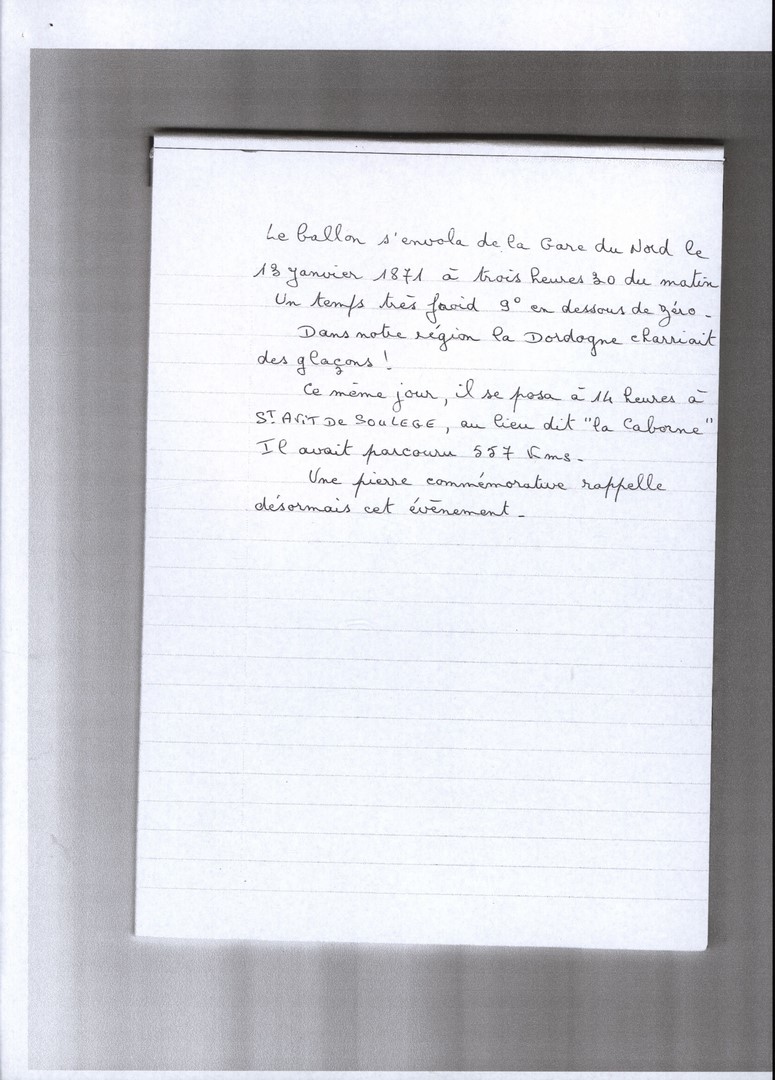 Le ballon s'envola de la Gare du Nord le
13 Janvier 1871 à trois heures 30 du matin
Un temps très froid 9° en dessous de zéro -
Dans notre région la Dordogne charriait
des glaçons !
Ce même jour, il se posa à 14 heures à
ST AVIT DE SOULEGE, au lieu dit "la Caborne"
Il avait parcouru 557 Kms -
Une pierre commémorative rappelle
désormais cet évènement -